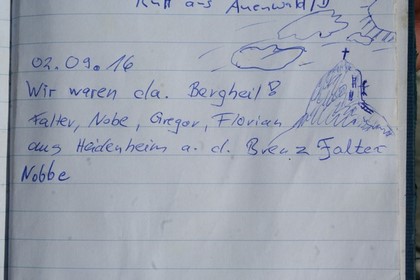 aus Auenwald/D
02.09.16
Wir waren da. Bergheil!
Falter, Nobe, Gregor, Florian
aus Heidenheim a. d. Brenz Falter
Nobbe